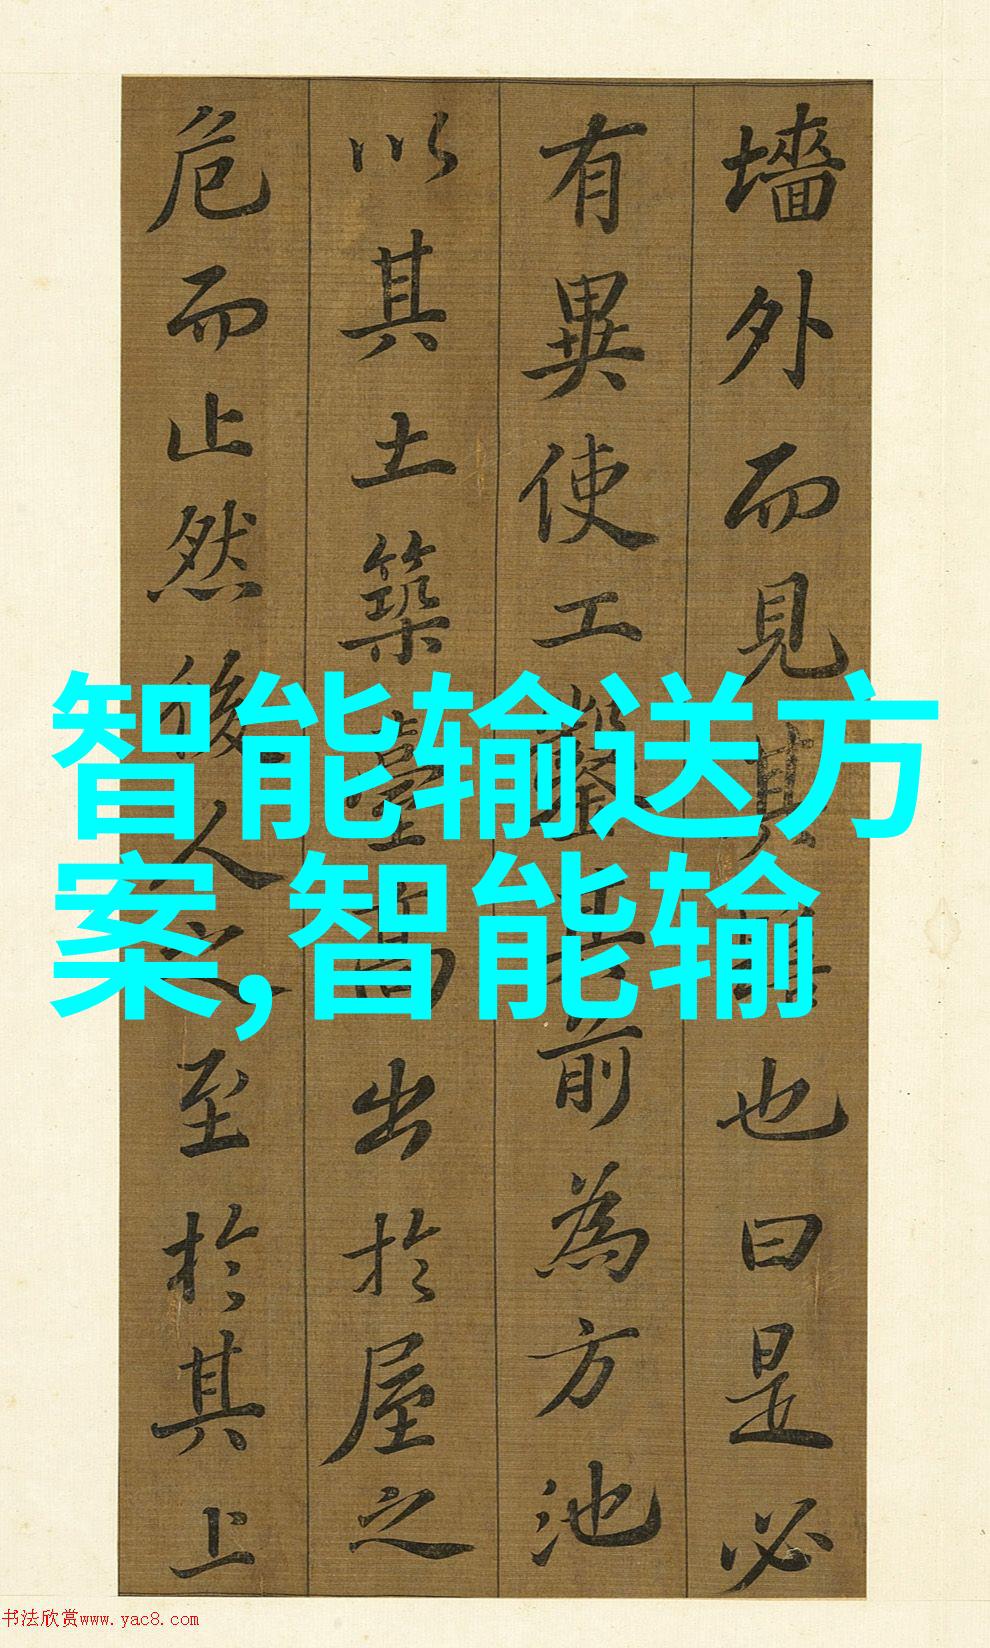 墻外而見其髻也曰是必
有異使工鑿其前為方池
以其土築臺高出於屋之
危而止然後人之至於其上
智能输送方
案,智能输
书法欣赏www.yac8.com